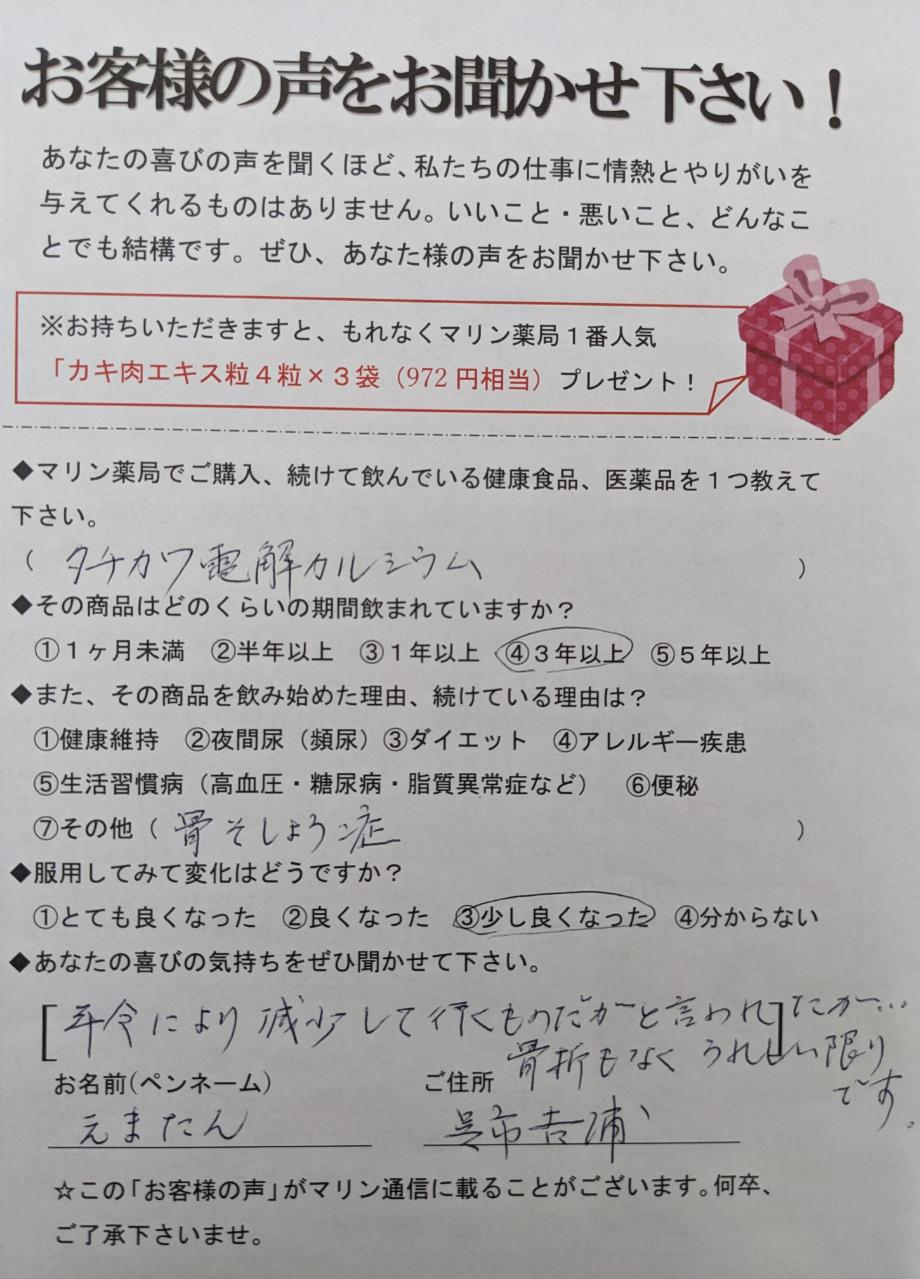 お客様の声をお聞かせ下さい！
あなたの喜びの声を聞くほど、私たちの仕事に情熱とやりがいを
与えてくれるものはありません。いいこと・悪いこと、どんなこ
とでも結構です。ぜひ、あなた様の声をお聞かせ下さい。
※お持ちいただきますと、もれなくマリン薬局１番人気
「カキ肉エキス粒４粒×３袋（972 円相当）プレゼント！
◆マリン薬局でご購入、続けて飲んでいる健康食品、医薬品を１つ教えて
下さい。
（ タチカワ電解カルシウム ）
◆その商品はどのくらいの期間飲まれていますか？
①１ヶ月未満 ②半年以上 ③１年以上 ④３年以上 ⑤５年以上
◆また、その商品を飲み始めた理由、続けている理由は？
①健康維持 ②夜間尿（頻尿）③ダイエット ④アレルギー疾患
⑤生活習慣病（高血圧・糖尿病・脂質異常症など） ⑥便秘
⑦その他（ 骨そしょう症 ）
◆服用してみて変化はどうですか？
①とても良くなった ②良くなった ③少し良くなった ④分からない
◆あなたの喜びの気持ちをぜひ聞かせて下さい。
[年令により減少して行くものだがと言われ]たが…
骨折もなくうれしい限り
です。
お名前（ペンネーム） ご住所
えまたん 呉市吉浦
☆この「お客様の声」がマリン通信に載ることがございます。何卒、
ご了承下さいませ。